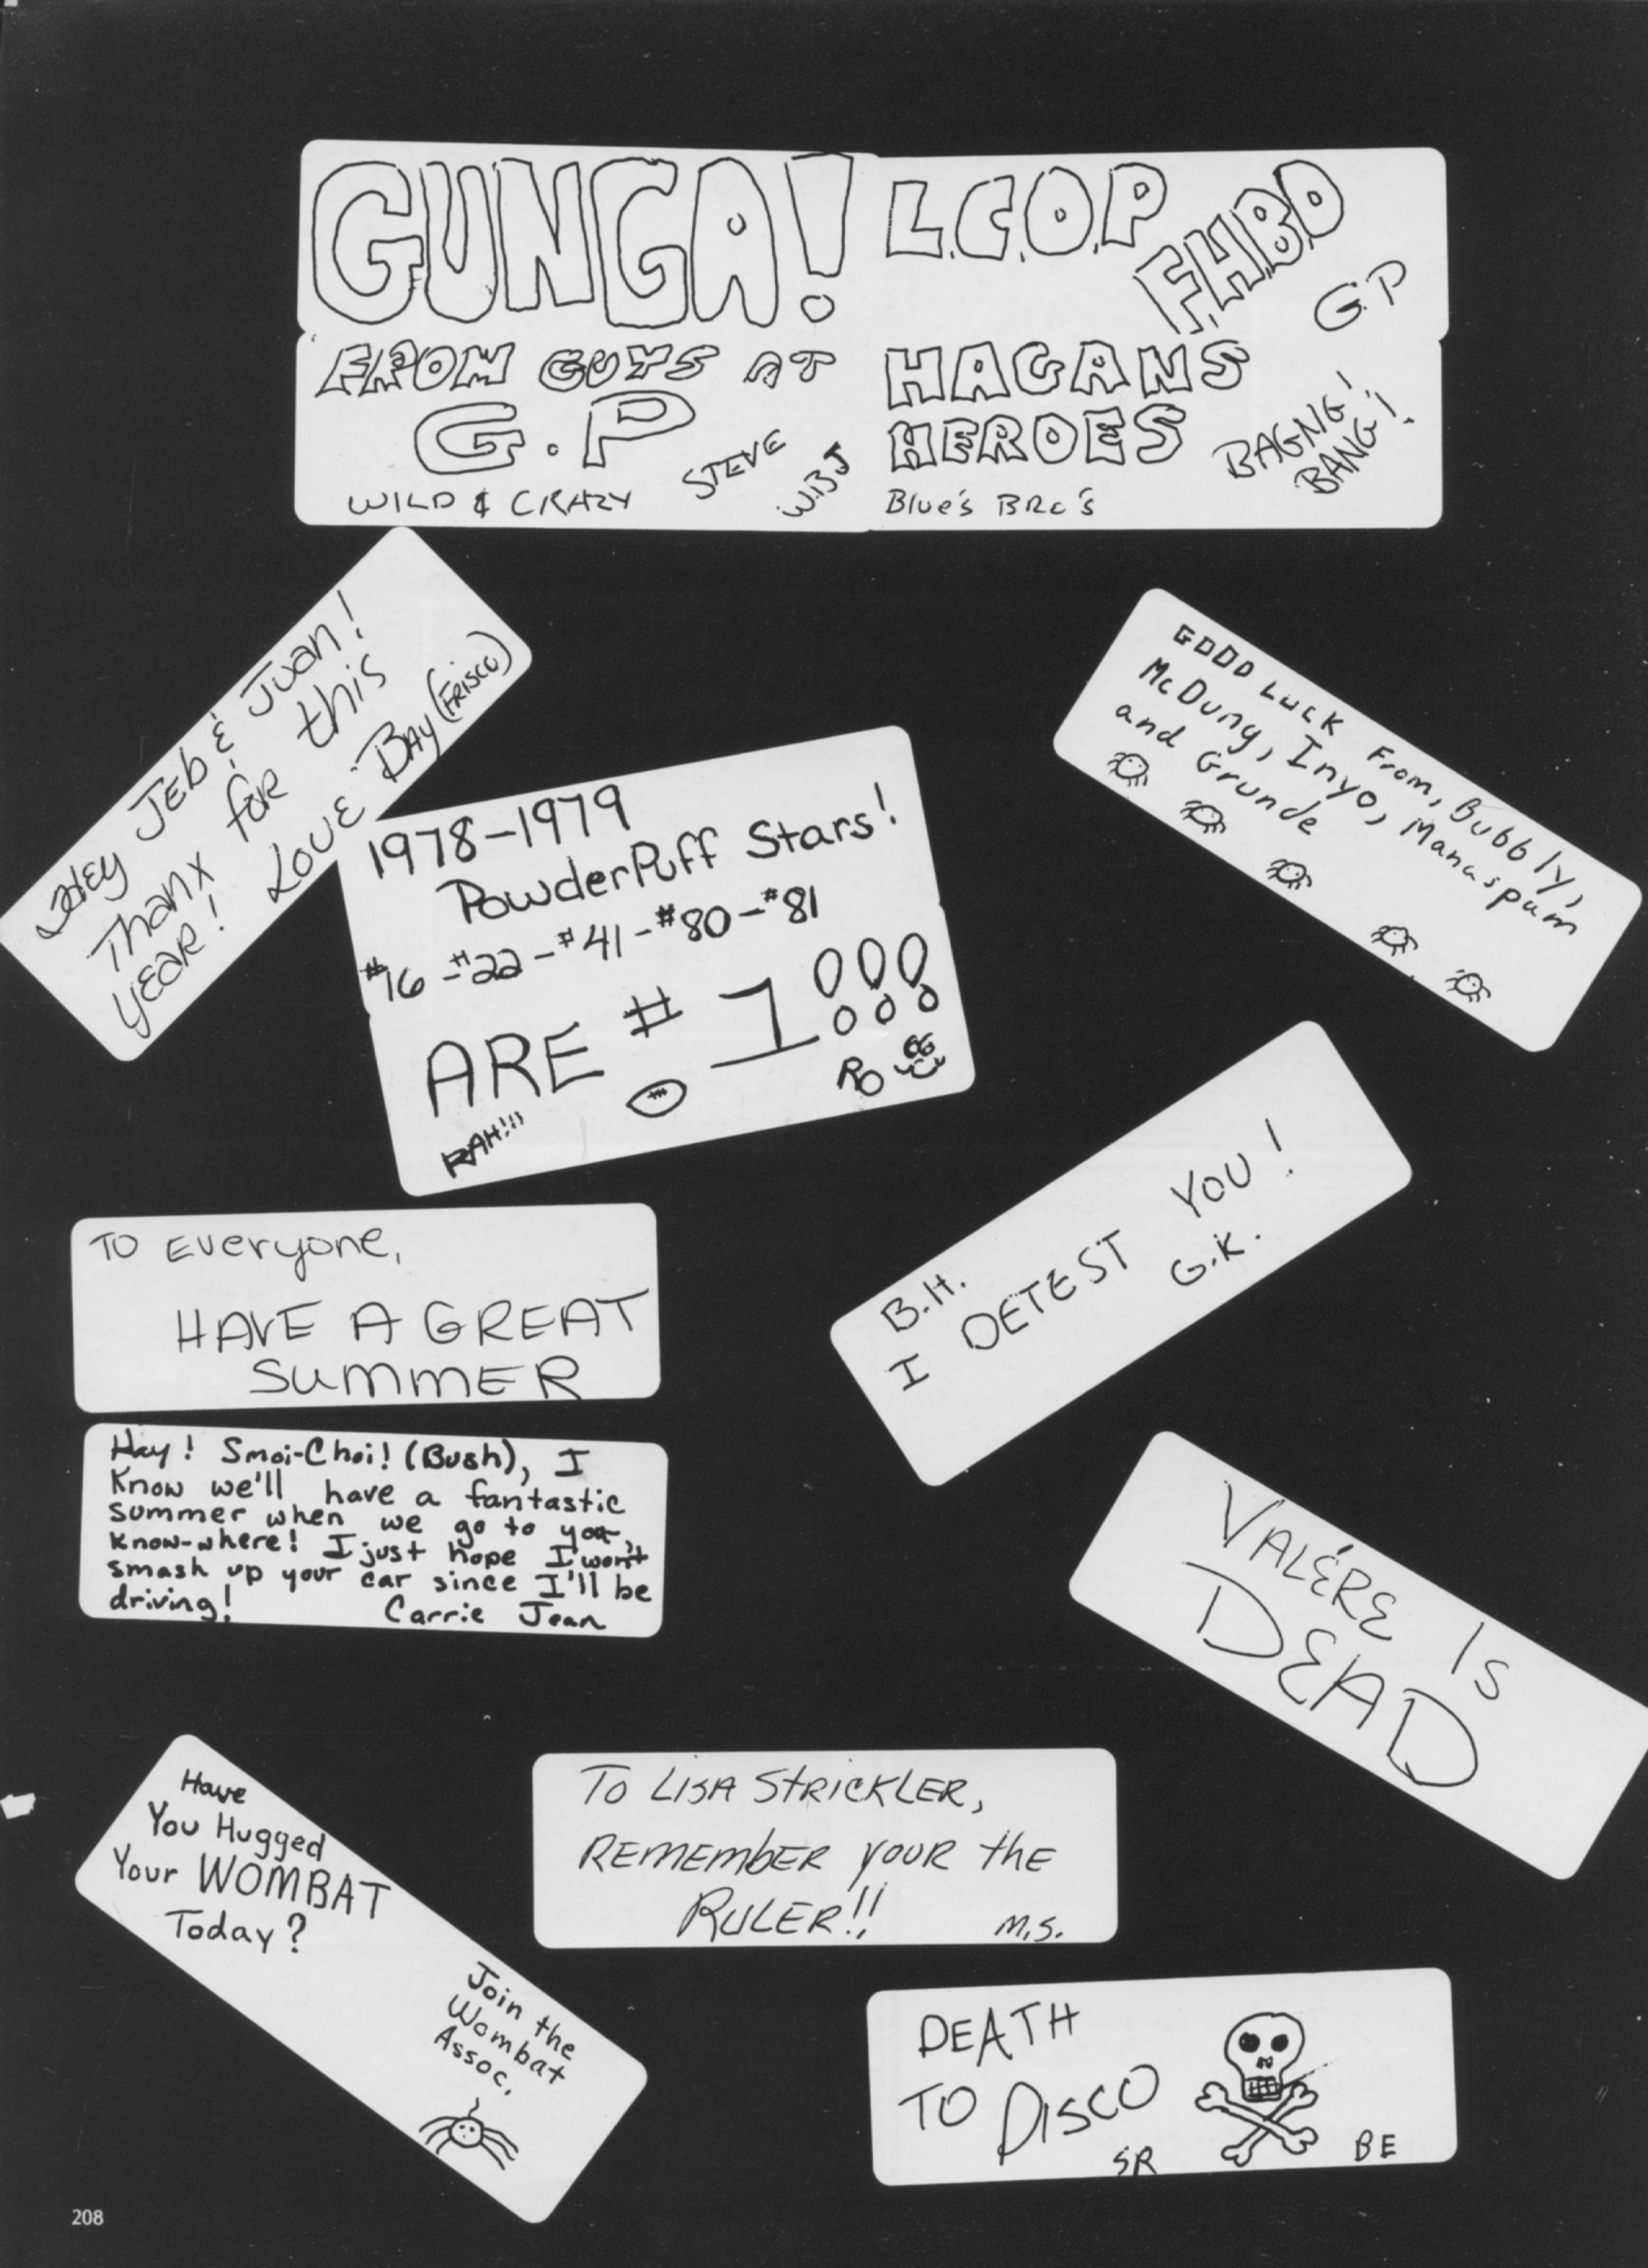 GUNGA!
FROM GUYS AT
G.P
STEVE
WBJ
WILD & CRAZY
L.C.O.P
F.H.B.D
G.P
HAGANS
HEROES
BAGNG!
BANG!!
Blue's BRO's
Hey JEb & Juan!
Thanx for this
yEaR!
LOVE BAy (FRISCO)
GOOD LUCK From, Bubbly,
McDung, Inyo, Manaspam
and Grunde
1978-1979
PowderPuff Stars!
#16-#22-#41-#80-#81
ARE #1!!!
RAH!!!
RO
B.H.
I DETEST YOU!
G.K.
TO Everyone,
HAVE A GREAT
SUMMER
Hay! Smoi-Choi! (Bush), I
Know we'll have a fantastic
summer when we go to you,
know-where! I just hope I won't
smash up your car since I'll be
driving!
Carrie Jean
VALÉRE IS
DEAD
Have
You Hugged
Your WOMBAT
Today?
Join the
Wombat
Assoc.
To LISA STRICKLER,
REMEMbER YOUR the
RULER!!
M.S.
DEATH
TO DISCO
SR
BE
208